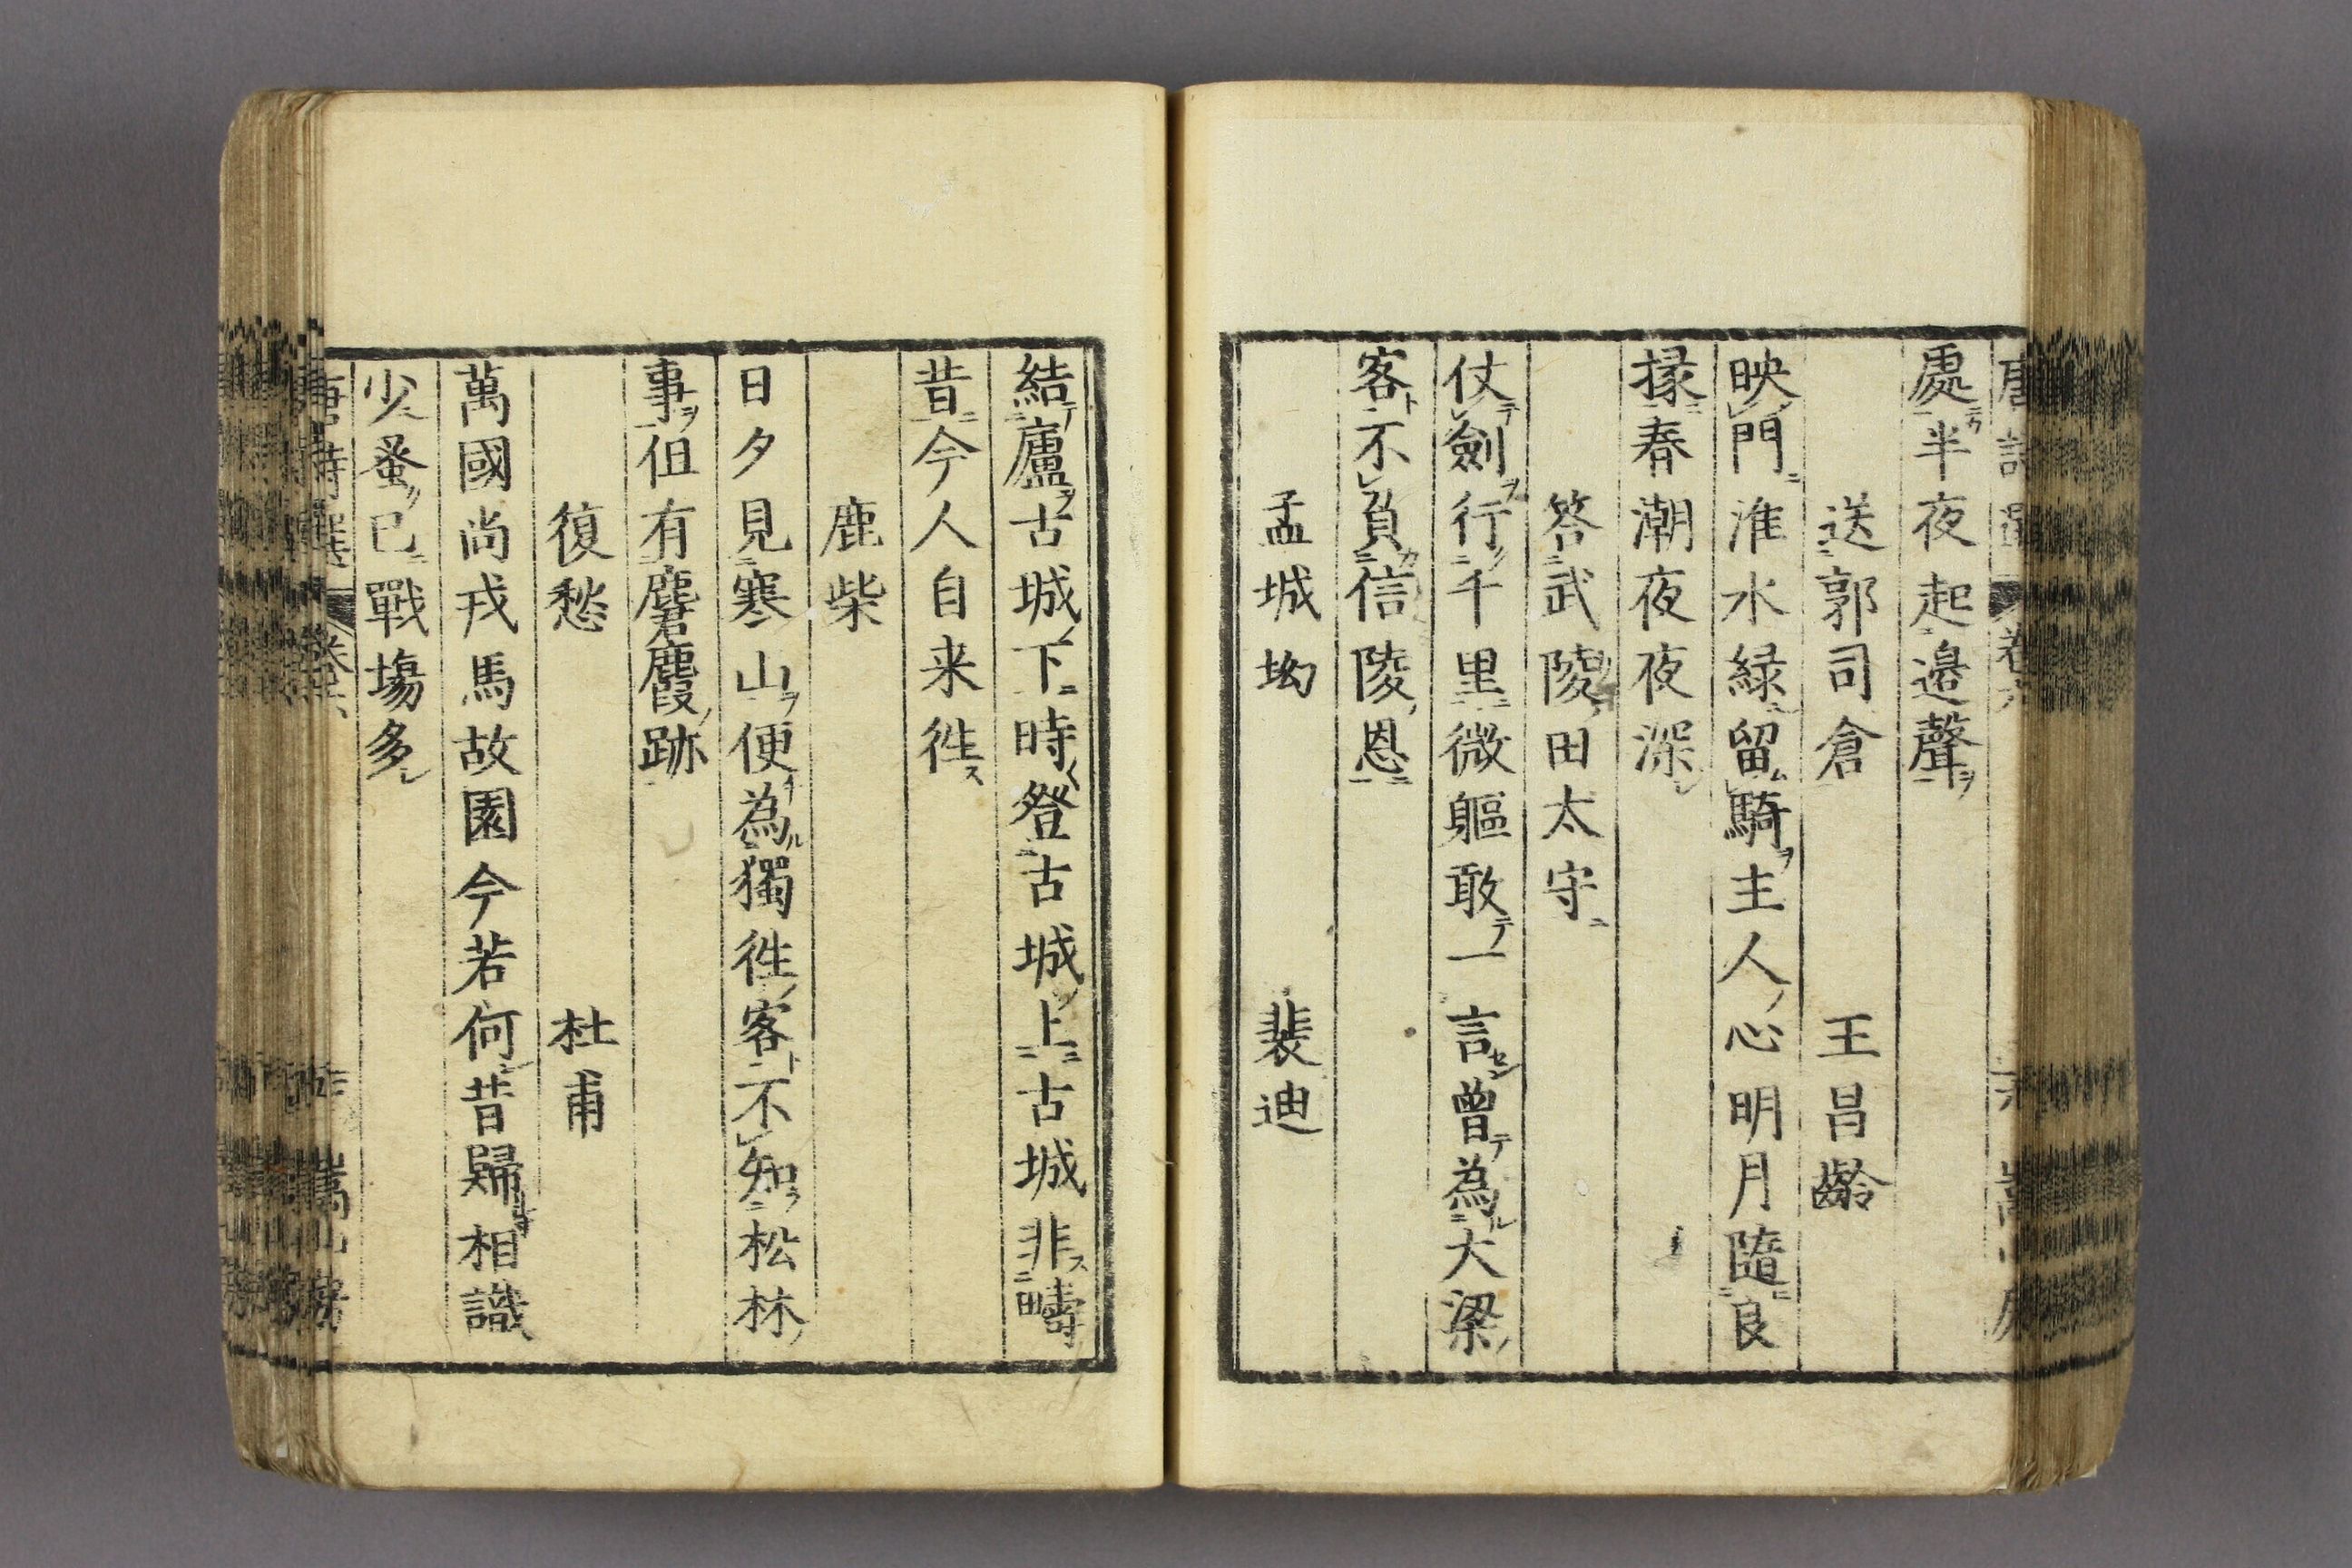 唐詩選 卷六
處半夜起邉聲
送郭司倉 王昌齡
映門淮水緑留騎主人心明月隨良
掾春潮夜夜深
答武陵田太守
仗劍行千里微軀敢一言曽為大梁
客不負信陵恩
孟城坳 裴迪
結廬古城下時登古城上古城非疇
昔今人自来徃
鹿柴
日夕見寒山便為獨徃客不知松林
事但有麏麚跡
復愁 杜甫
萬國尚戎馬故園今若何昔歸相識
少蚤已戰塲多
唐詩選 卷六